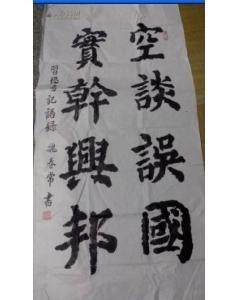 空談誤國
實幹興邦
習總書記語録
春常書